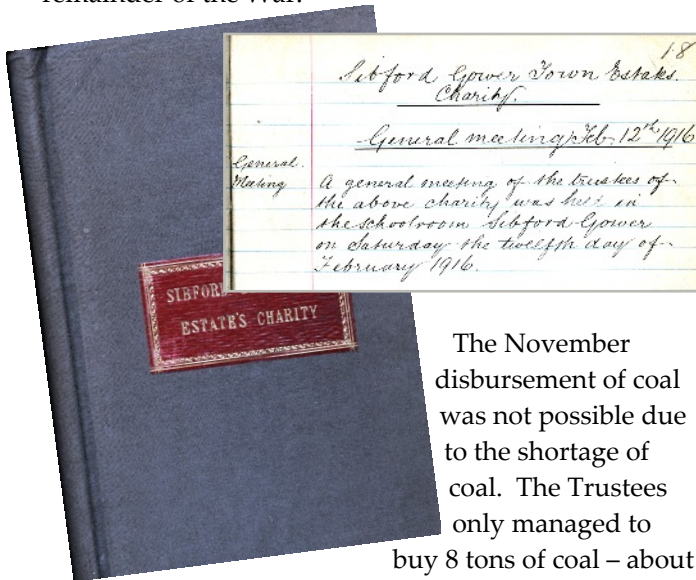 remainder of the War.
18
Sibford Gower Town Estates
Charity.
General meeting Feb. 12th 1916
General
Meeting
A general meeting of the trustees of
the above charity was held in
the schoolroom Sibford Gower
on Saturday the twelfth day of
February 1916.
SIBFOR
ESTATE'S CHARITY
The November
disbursement of coal
was not possible due
to the shortage of
coal. The Trustees
only managed to
buy 8 tons of coal – about